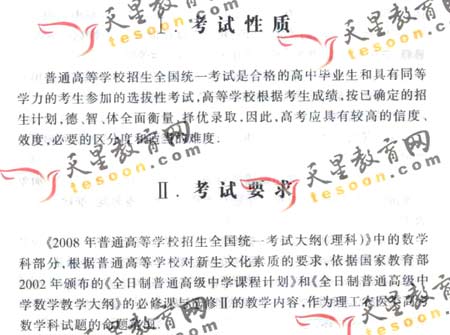 Ⅰ.考试性质
普通高等学校招生全国统一考试是合格的高中毕业生和具有同等
学力的考生参加的选拔性考试,高等学校根据考生成绩,按已确定的招
生计划,德、智、体全面衡量,择优录取.因此,高考应具有较高的信度、
效度,必要的区分度和适当的难度.
Ⅱ.考试要求
《2008年普通高等学校招生全国统一考试大纲(理科)》中的数学
科部分,根据普通高等学校对新生文化素质的要求,依据国家教育部
2002年颁布的《全日制普通高级中学课程计划》和《全日制普通高级中
学数学教学大纲》的必修课与选修Ⅱ的教学内容,作为理工农医
数学科试题的命题
天星教育网
tesoon.com
天星教育网
tesoon.com
天星教育网
tesoon.com
天星教育网
tesoon.com